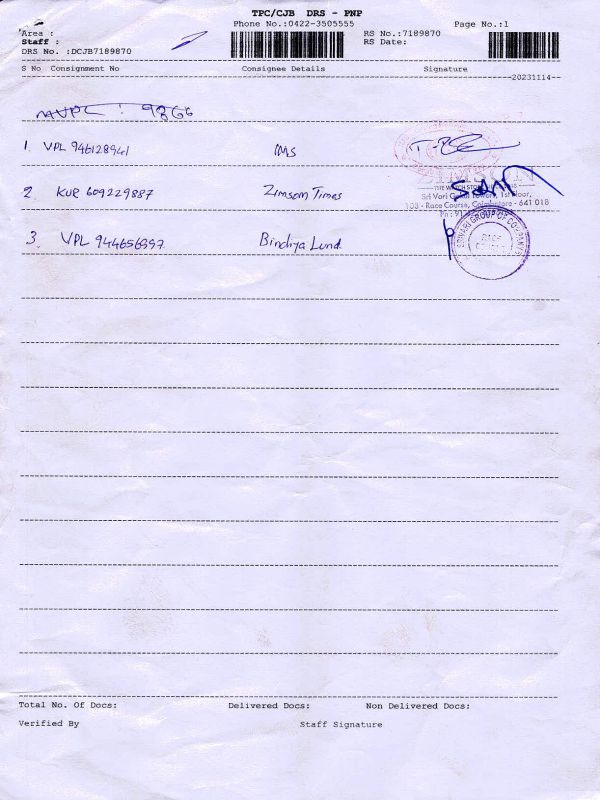 TPC/CJB DRS - PNP
Phone No.:0422-3505555 Page No.:1
Area :
Staff : RS No.:7189870
DRS No. :DCJB7189870 RS Date:
S No Consignment No Consignee Details Signature
20231114
MVPL : 9866
1 VPL 946128941 IMS
2 KUR 609229887 Zimsom Times
THE WATCH STORE
Sri Vari Towers, 1st Floor,
108 - Race Course, Coimbatore - 641 018
Ph : 91
3 VPL 944656397 Bindiya Lund
SRIVARI GROUP OF COMPANIES
RACE
Total No. Of Docs: Delivered Docs: Non Delivered Docs:
Verified By Staff Signature